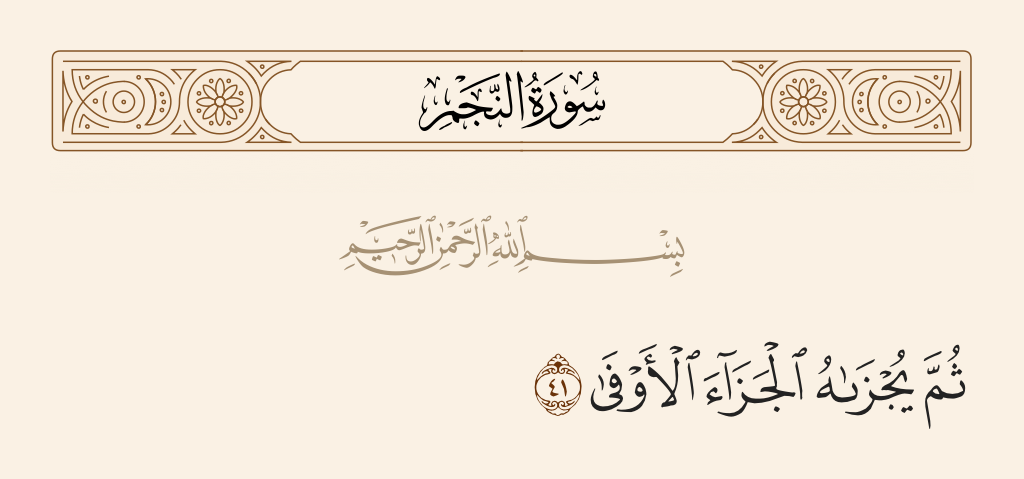 سُورَةُ النَّجْمِ
بِسْمِ ٱللَّهِ ٱلرَّحْمَٰنِ ٱلرَّحِيمِ
ثُمَّ يُجْزَىٰهُ ٱلْجَزَآءَ ٱلْأَوْفَىٰ ٤١